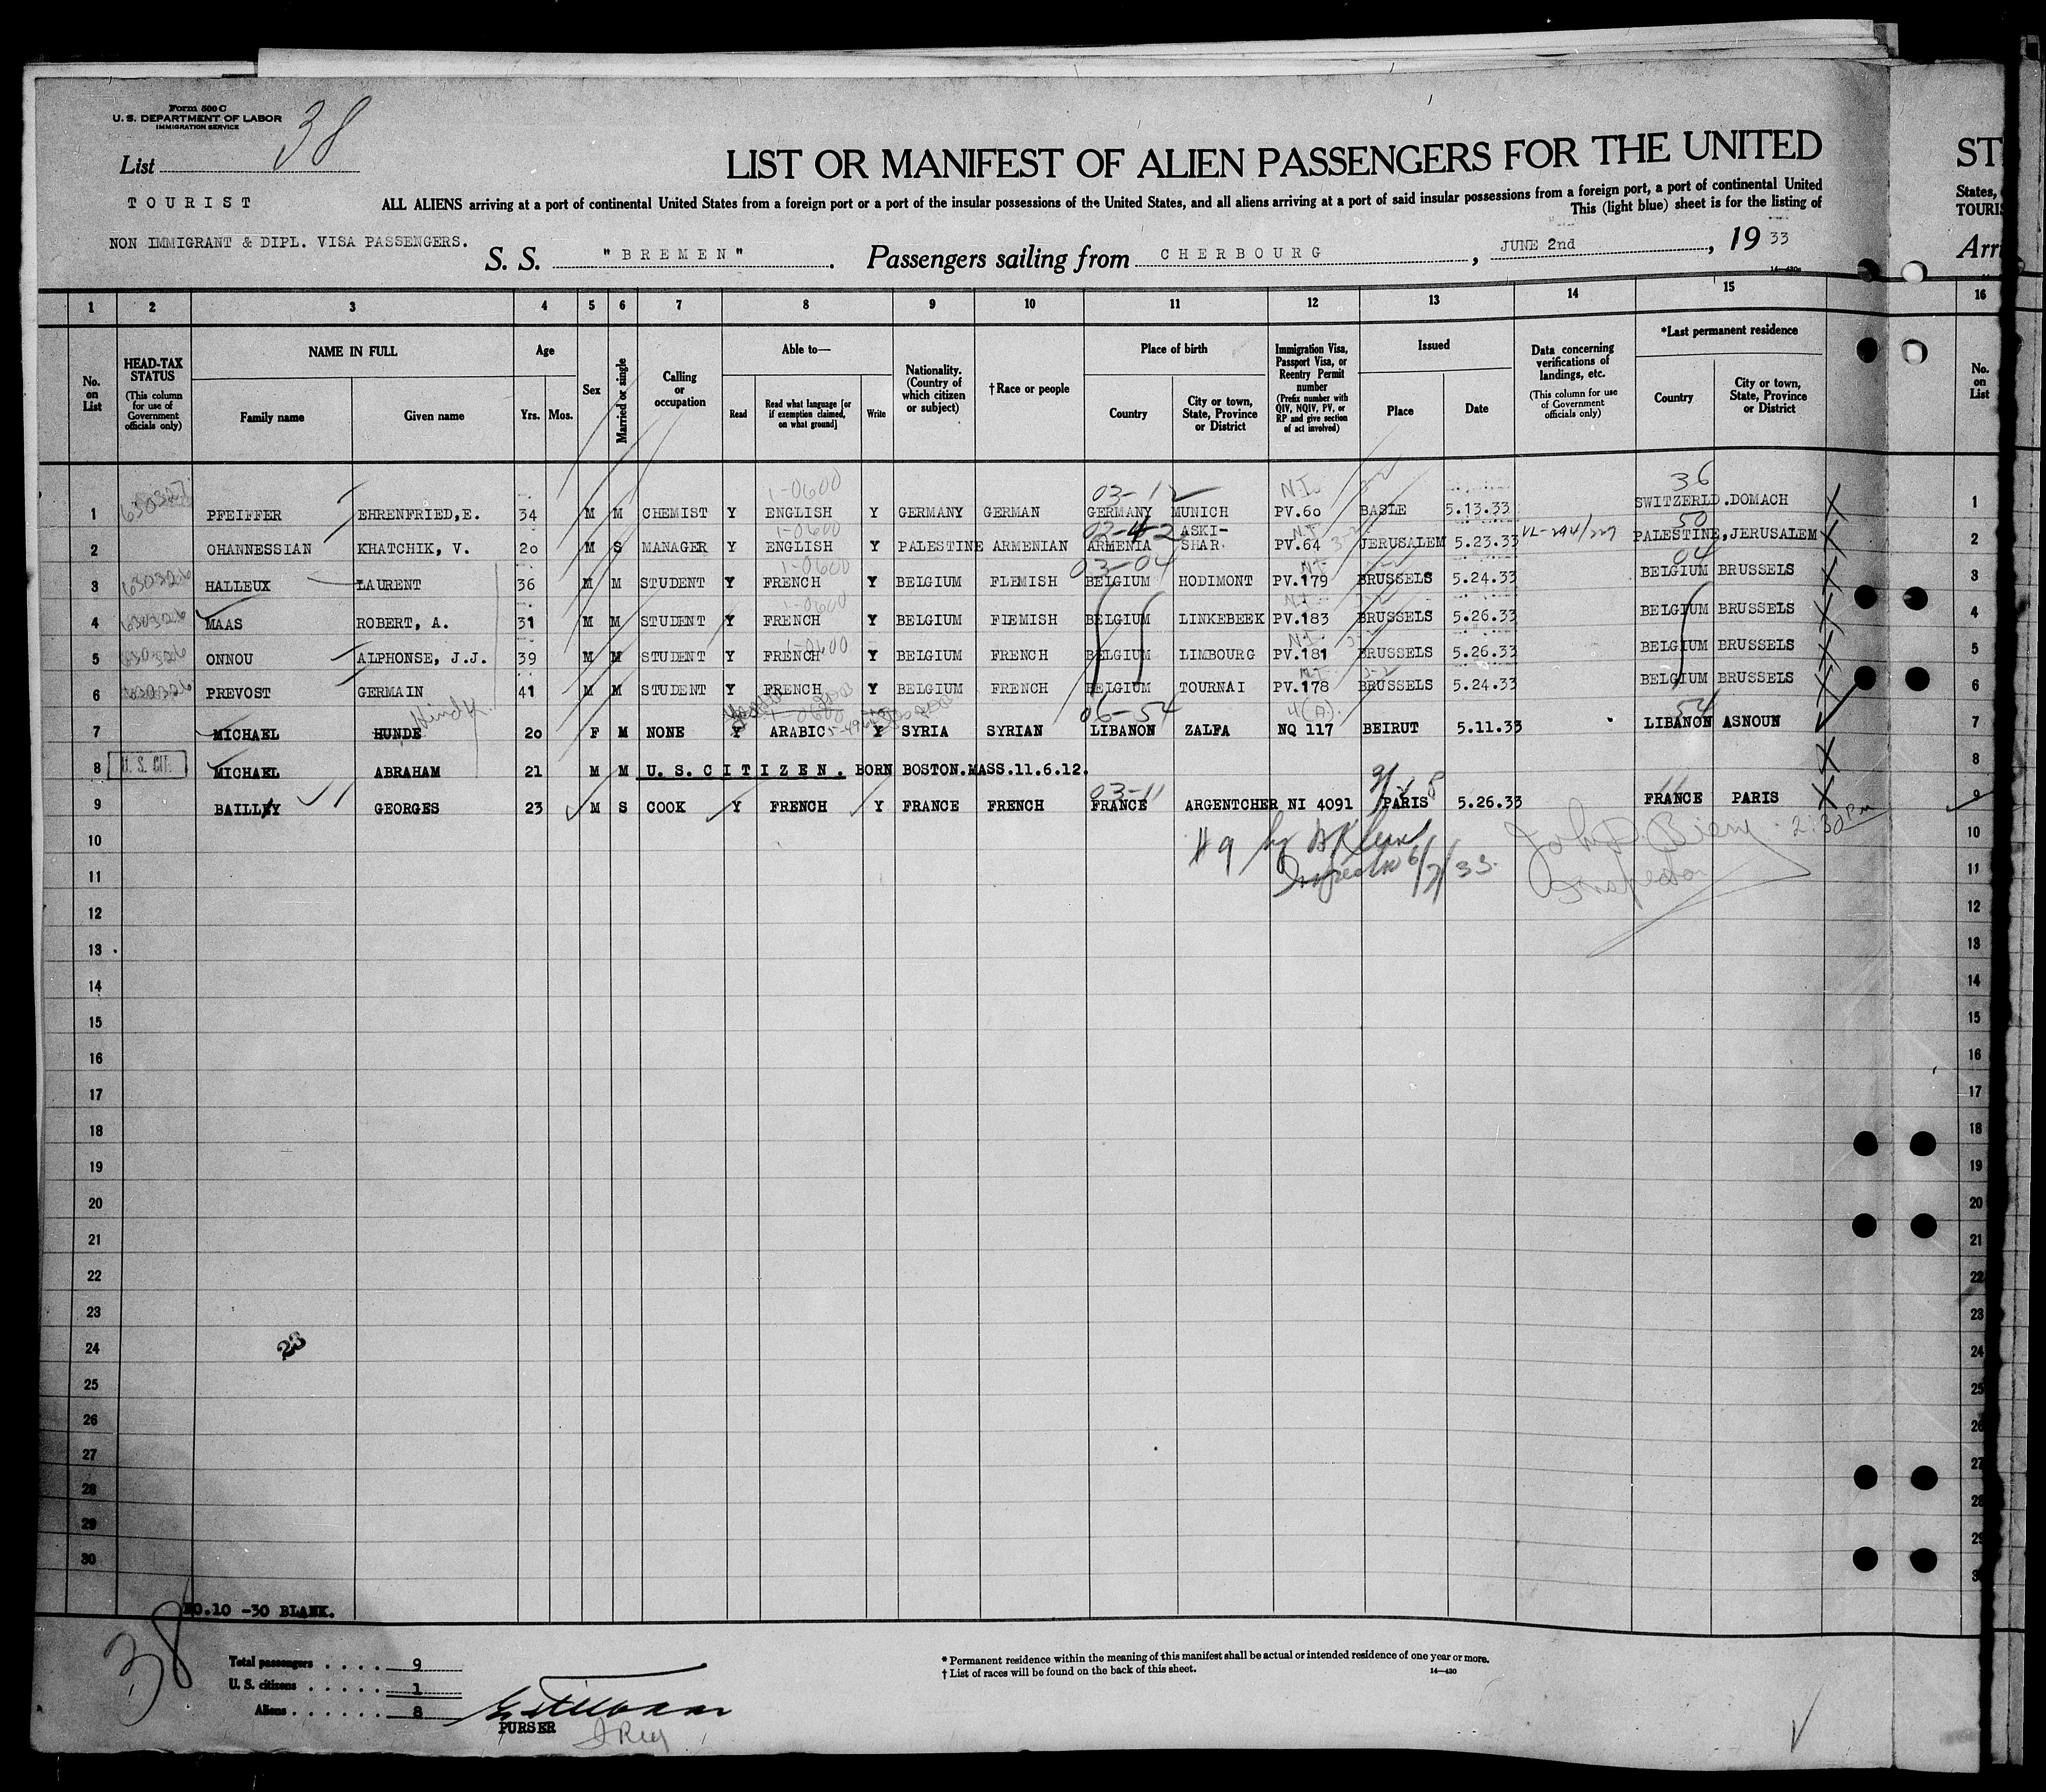 Form 500 C
U. S. DEPARTMENT OF LABOR
IMMIGRATION SERVICE
List 38
TOURIST
NON IMMIGRANT & DIPL. VISA PASSENGERS.
LIST OR MANIFEST OF ALIEN PASSENGERS FOR THE UNITED
ST
ALL ALIENS arriving at a port of continental United States from a foreign port or a port of the insular possessions of the United States, and all aliens arriving at a port of said insular possessions from a foreign port, a port of continental United
States,
This (light blue) sheet is for the listing of
TOURIS
S. S. "BREMEN". Passengers sailing from CHERBOURG, JUNE 2nd, 19 33
Arri
1 2 3 4 5 6 7 8 9 10 11 12 13 14 15 16
No. on List
HEAD-TAX STATUS
(This column for use of Government officials only)
NAME IN FULL
Family name
Given name
Age
Yrs. Mos.
Sex
Married or single
Calling or occupation
Able to—
Read
Read what language [or if exemption claimed, on what ground]
Write
Nationality. (Country of which citizen or subject)
†Race or people
Place of birth
Country
City or town, State, Province or District
Immigration Visa, Passport Visa, or Reentry Permit number
(Prefix number with QIV, NQIV, PV, or RP and give section of act involved)
Issued
Place
Date
Data concerning verifications of landings, etc.
(This column for use of Government officials only)
*Last permanent residence
Country
City or town, State, Province or District
No. on List
1-0600 03-12 NI 36
1 630327 PFEIFFER EHRENFRIED,E. 34 M M CHEMIST Y ENGLISH Y GERMANY GERMAN GERMANY MUNICH PV.60 BASLE 5.13.33 SWITZERLD.DOMACH 1
1-0600 03-42 NI 50
2 OHANNESSIAN KHATCHIK, V. 20 M S MANAGER Y ENGLISH Y PALESTINE ARMENIAN ARMENIA ASKI-SHAR. PV.64 JERUSALEM 5.23.33 VL-294/229 PALESTINE,JERUSALEM 2
1-0600 03-04 NI 04
3 630326 HALLEUX LAURENT 36 M M STUDENT Y FRENCH Y BELGIUM FLEMISH BELGIUM HODIMONT PV.179 BRUSSELS 5.24.33 BELGIUM BRUSSELS 3
1-0600 NI
4 630326 MAAS ROBERT, A. 31 M M STUDENT Y FRENCH Y BELGIUM FlEMISH BELGIUM LINKEBEEK PV.183 BRUSSELS 5.26.33 BELGIUM BRUSSELS 4
1-0600 NI
5 630326 ONNOU ALPHONSE, J.J. 39 M M STUDENT Y FRENCH Y BELGIUM FRENCH BELGIUM LIMBOURG PV.181 BRUSSELS 5.26.33 BELGIUM BRUSSELS 5
NI
6 630326 PREVOST GERMAIN 41 M M STUDENT Y FRENCH Y BELGIUM FRENCH BELGIUM TOURNAI PV.178 BRUSSELS 5.24.33 BELGIUM BRUSSELS 6
1-0600 06-54 4(A) 54
7 MICHAEL HUNDE 20 F M NONE Y ARABIC Y SYRIA SYRIAN LIBANON ZALFA NQ 117 BEIRUT 5.11.33 LIBANON ASNOUN 7
8 U. S. CIT. MICHAEL ABRAHAM 21 M M U.S.CITIZEN. BORN BOSTON.MASS.11.6.12. 8
03-11 11
9 BAILLEY GEORGES 23 M S COOK Y FRENCH Y FRANCE FRENCH FRANCE ARGENTCHER NI 4091 PARIS 5.26.33 FRANCE PARIS 9
10 2:30 PM 10
#9 by
11 Inspector 6/7/33. Inspector 11
12 12
13 13
14 14
15 15
16 16
17 17
18 18
19 19
20 20
21 21
22 22
23 23
24 23 24
25 25
26 26
27 27
28 28
29 29
30
NO.10 -30 BLANK.
38
Total passengers .... 9
U. S. citizens ..... 1
Aliens ...... 8
PURSER
* Permanent residence within the meaning of this manifest shall be actual or intended residence of one year or more.
† List of races will be found on the back of this sheet.
14—430